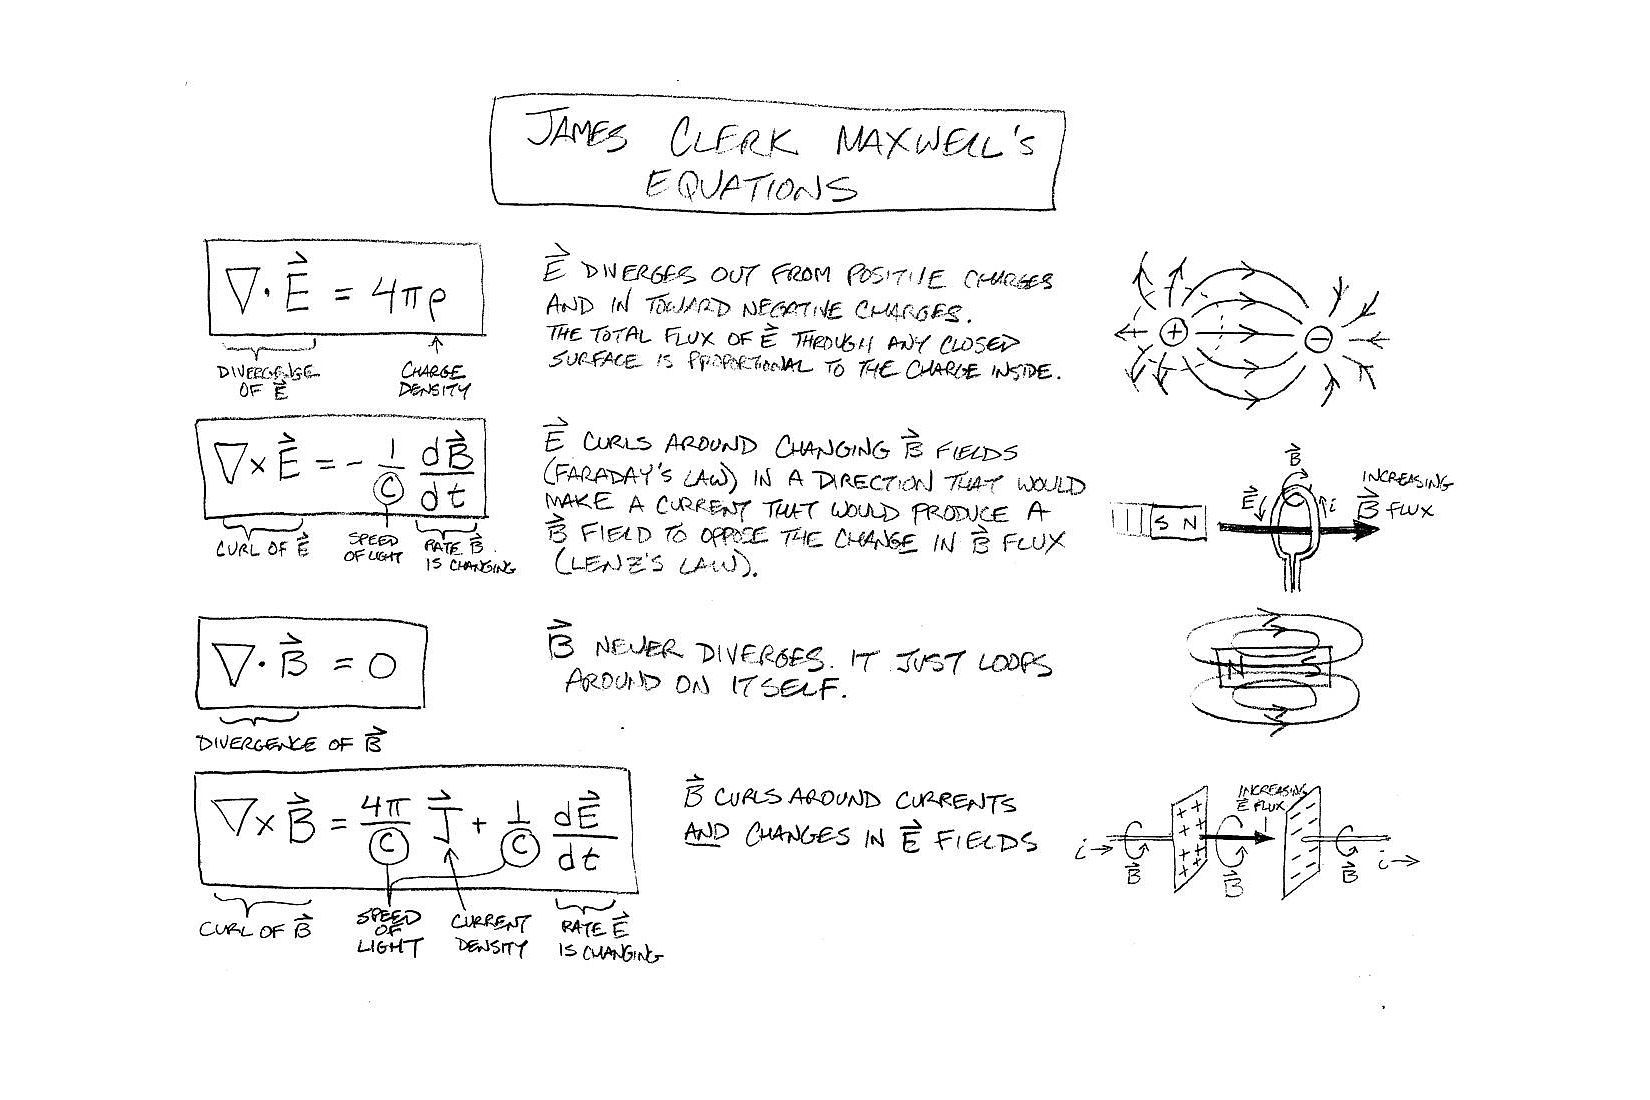 JAMES CLERK MAXWELL'S
EQUATIONS
∇·E⃗ = 4πρ
DIVERGENCE
OF E⃗
CHARGE
DENSITY
E⃗ DIVERGES OUT FROM POSITIVE CHARGES
AND IN TOWARD NEGATIVE CHARGES.
THE TOTAL FLUX OF E⃗ THROUGH ANY CLOSED
SURFACE IS PROPORTIONAL TO THE CHARGE INSIDE.
+ −
∇×E⃗ = - 1/c dB⃗/dt
CURL OF E⃗
SPEED
OF LIGHT
RATE B⃗
IS CHANGING
E⃗ CURLS AROUND CHANGING B⃗ FIELDS
(FARADAY'S LAW) IN A DIRECTION THAT WOULD
MAKE A CURRENT THAT WOULD PRODUCE A
B⃗ FIELD TO OPPOSE THE CHANGE IN B⃗ FLUX
(LENZ'S LAW).
S N
B⃗
E⃗
i
INCREASING
B⃗ FLUX
∇·B⃗ = 0
DIVERGENCE OF B⃗
B⃗ NEVER DIVERGES. IT JUST LOOPS
AROUND ON ITSELF.
N S
∇×B⃗ = 4π/c J⃗ + 1/c dE⃗/dt
CURL OF B⃗
SPEED
OF
LIGHT
CURRENT
DENSITY
RATE E⃗
IS CHANGING
B⃗ CURLS AROUND CURRENTS
AND CHANGES IN E⃗ FIELDS
INCREASING
E⃗ FLUX
i→
B⃗
B⃗
B⃗
i→